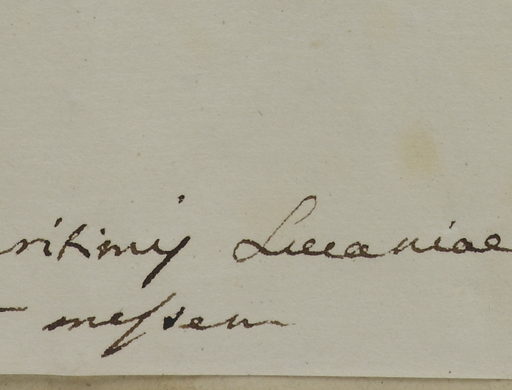 ritimij Lucaniae
messem